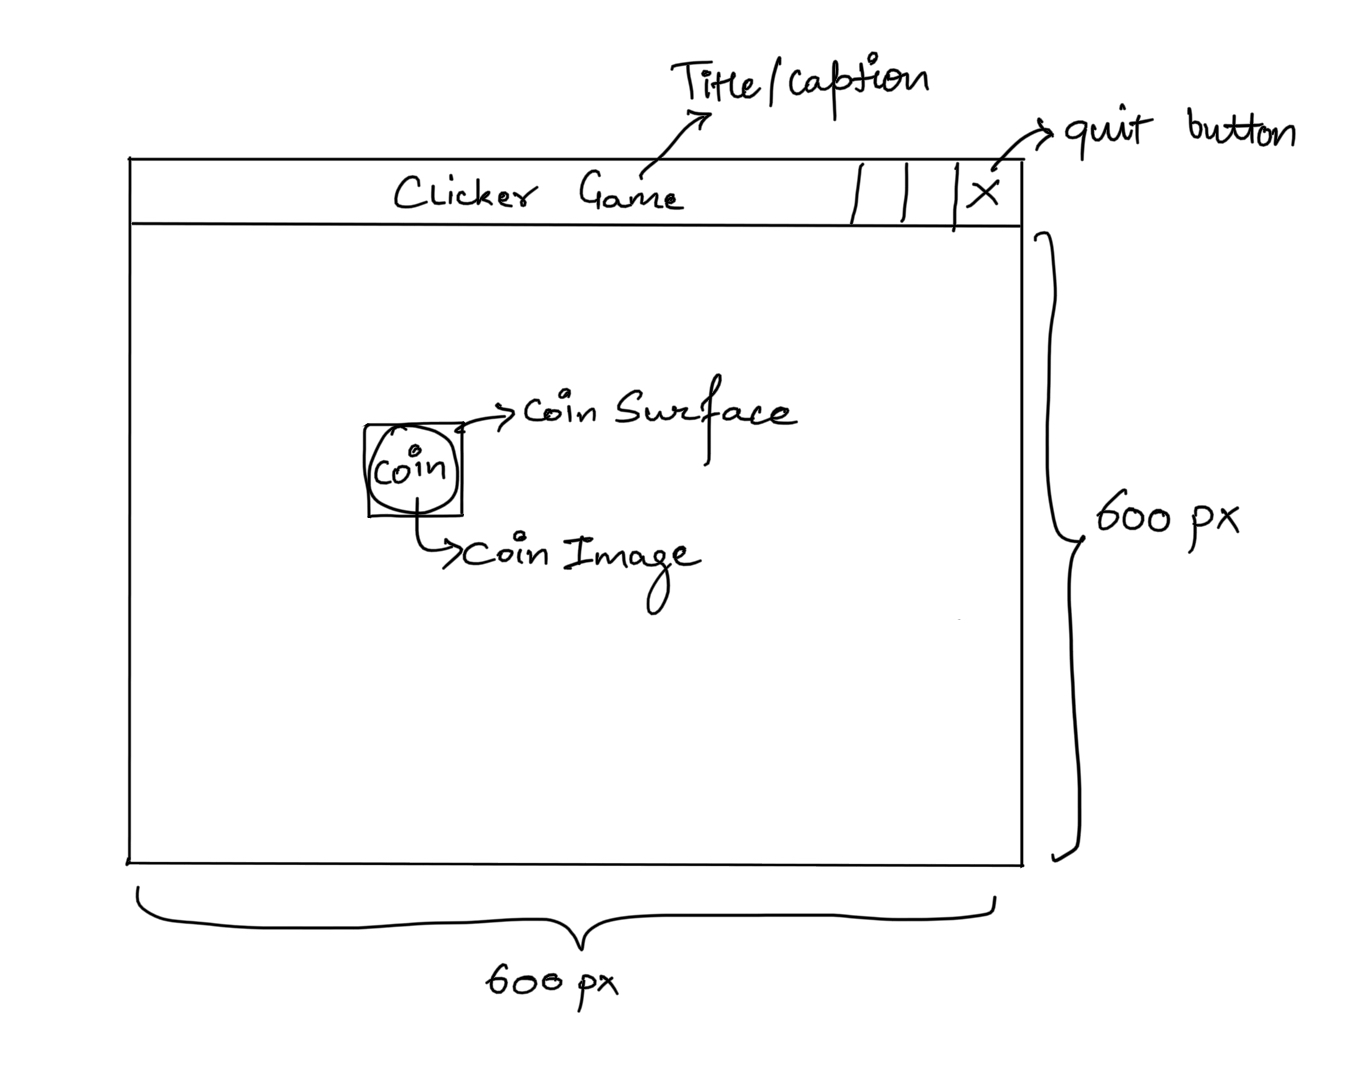 Title/caption
quit button
Clicker Game
X
Coin Surface
Coin
Coin Image
600 px
600 px